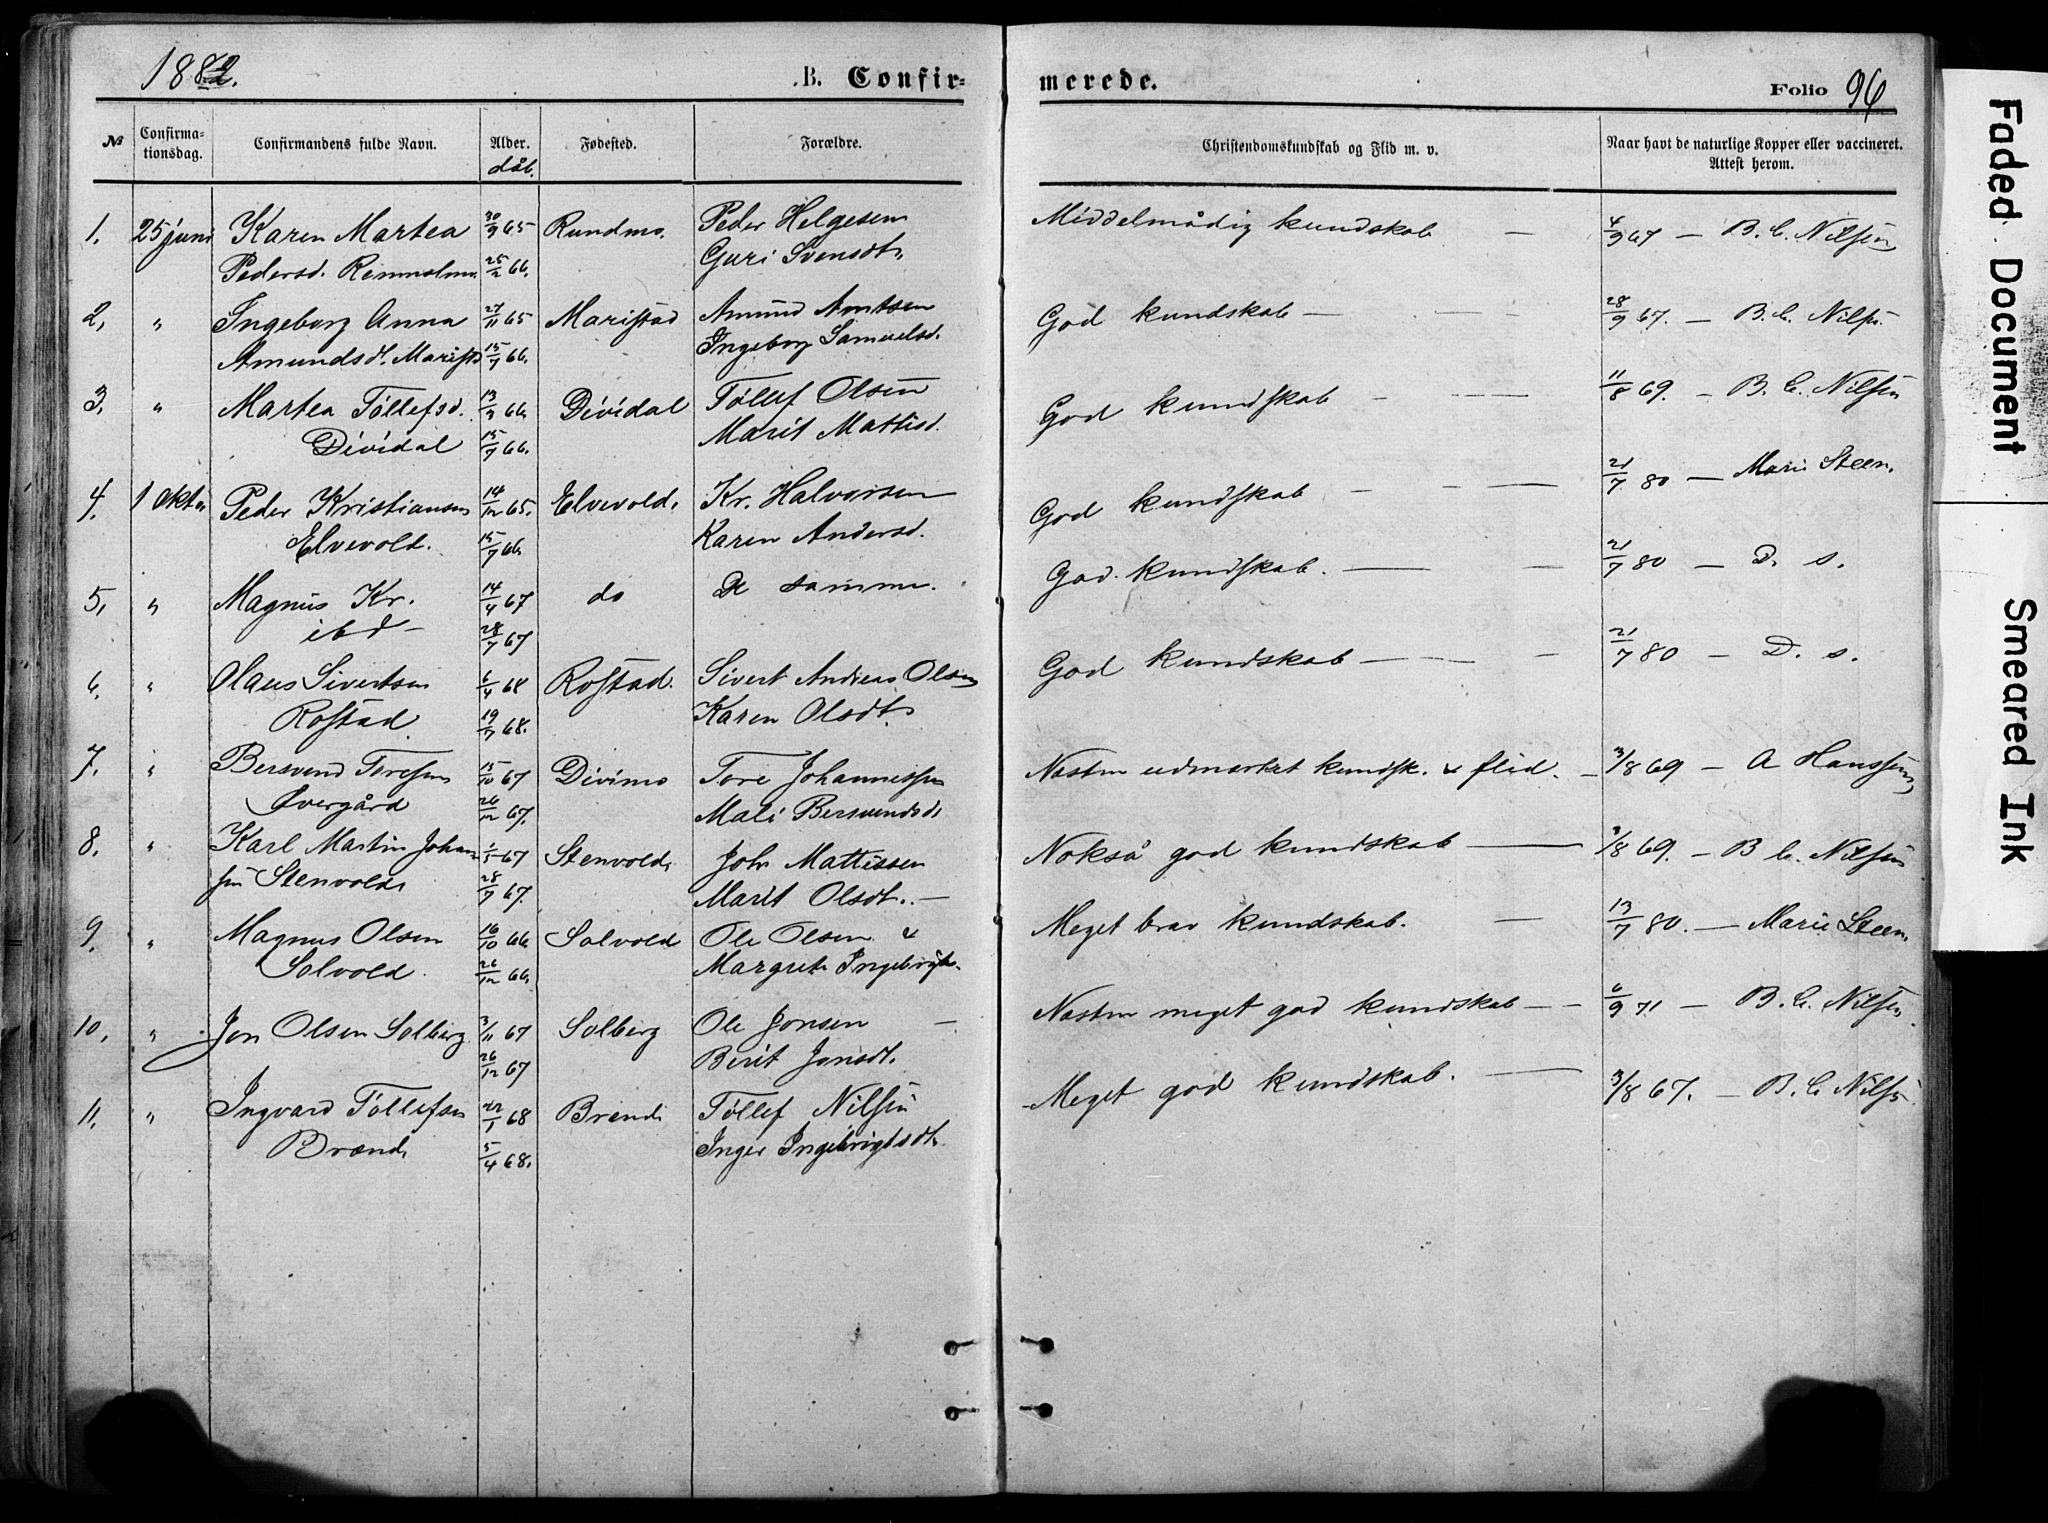 1882.
B. Confir-
merede.
Folio 96
№ Confirma-tionsdag. Confirmandens fulde Navn. Alder. dåb. Fødested. Forældre. Christendomskundskab og Flid m. v. Naar havt de naturlige Kopper eller vaccineret. Attest herom.
1. 25 juni Karen Martea 30/9 65 Rundmo. Peder Helgesen Middelmådig kundskab — 4/9 67 — B. C. Nilsen
Pedersd. 25/2 66. Guri Svensdt.
2, " Ingeborg Anna 27/11 65 Maristad Amund Arntsen God kundskab — 28/9 67. — B. C. Nils.
Amundsdt. Marist 15/7 66. Ingeborg Samuelsd.
3, " Martea Tøllefsd. 13/3 66 Dividal Tøllef Olsen God kundskab — 11/8 69. — B. C. Nilsen
Dividal 15/7 66. Marit Mattisd.
4. 1 Okt. Peder Kristiansen 14/12 65. Elvevold. Kr. Halvorsen God kundskab — 21/7 80 — Marie Steen.
Elvevold. 15/7 66 Karen Andersd.
5, " Magnus Kr. 14/4 67 do De samme. God. kundskab. — 21/7 80 — D. s.
ibd — 28/7 67
6. " Olaus Sivertsen 6/4 68 Rostad. Sivert Andreas Olsen God kundskab — 21/7 80 — D. s.
Rostad. 19/7 68. Karen Olsdt.
7. " Bersvend Toresen 15/10 67 Divimo Tore Johannessen Næsten udmærket kundsk. & flid. — 3/8 69 — A Hanssen
Øvergård 26/12 67. Mali Bersvendsdt
8. " Karl Martin Johan 1/5 67 Stenvold. Johr Mattissen Nokså god kundskab — 3/8 69. — B C. Nilsen
sen Stenvold. 28/7 67. Marit Olsdt. —
9. " Magnus Olsen 16/10 66 Solvold Ole Olsen & Meget brav kundskab. — 13/7 80. — Marie Steen.
Solvold. 26/12 66. Margrete Ingebrigt.
10. " Jon Olsen Solberg 3/11 67 Solberg Ole Jonsen — Næsten meget god kundskab — 6/9 71 — B. C. Nilsen.
26/12 67 Berit Jonsdt.
11. " Ingvard Tøllefsen 22/1 68 Brend. Tøllef Nilsen Meget god kundskab. — 3/8 67. — B. C Nils.
Brænd. 5/4 68. Inger Ingebrigtsdt.
Faded Document
Smeared Ink